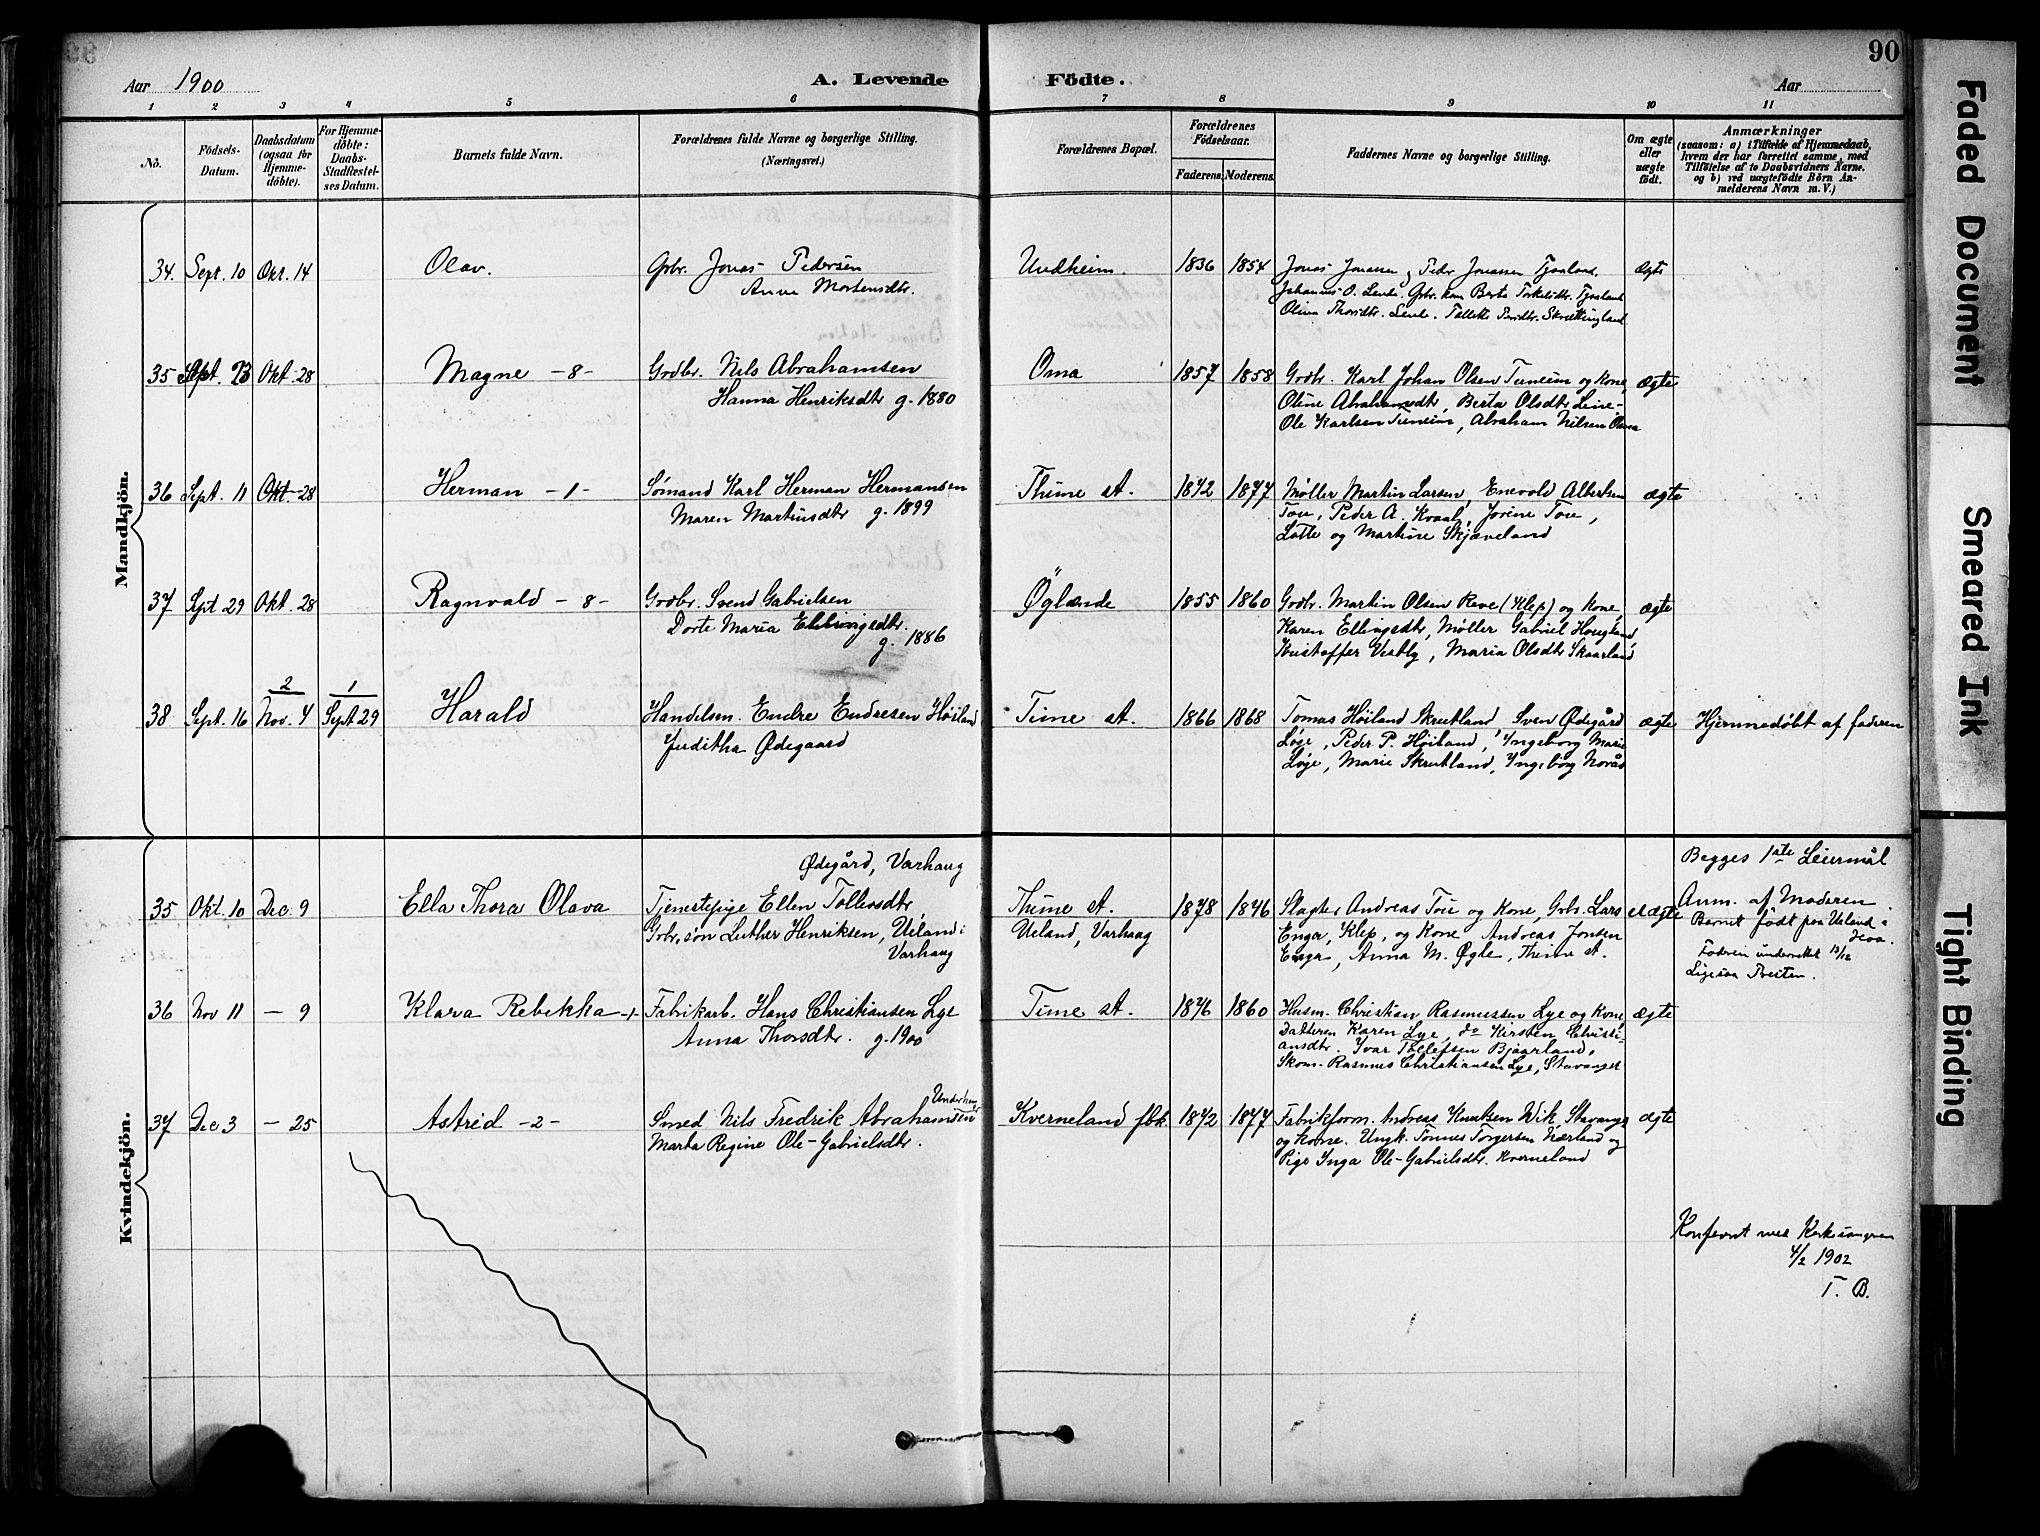 90
Aar 1900
A. Levende Födte.
Aar
1 2 3 4 5 6 7 8 9 10 11
No.
Födsels-Datum.
Daabsdatum (ogsaa for Hjemme-döbte).
For Hjemme-döbte: Daabs-Stadfæstel-ses Datum.
Barnets fulde Navn.
Forældrenes fulde Navne og borgerlige Stilling.
(Næringsvei.)
Forældrenes Bopæl.
Forældrenes Födselsaar.
Faderens. Moderens.
Faddernes Navne og borgerlige Stilling.
Om ægte eller uægte födt.
Anmærkninger
(saasom: a) i Tilfælde af Hjemmedaab,
hvem der har forrettet samme, med
Tilföielse af to Daabsvidners Navne,
og b) ved uægtefödte Börn An-
melderens Navn m. V.)
Mandkjön.
34. Sept. 10 Okt. 14 Olav. Gbr. Jonas Pedersen Undheim. 1836 1854 Jonas Jonassen, Peder Jonassen Tjaaland, ægte
Anne Mortensdtr. Johannes O. Lende. Gbr. kone Berta Torkelsdtr. Tjaaland
Olina Thorsdtr. Lende. Tollette Persdtr. Skrettingland
35 Sept. 23 Okt. 28 Magne - 8 - Grdbr. Nils Abrahamsen Oma 1857 1858 Grdbr. Karl Johan Olsen Tuneim og kone, ægte
Hanna Henriksdtr g. 1880 Oline Abrahamsdtr, Berta Olsdtr Leine-
Ole Karlsen Tuneim, Abraham Nilsen Oma
36 Sept. 11 Okt. 28 Herman - 1 - Sømand Karl Herman Hermansen Thime st. 1872 1877 Møller Martin Larsen, Enevold Albertsen ægte
Maren Martinsdtr g. 1899 Tou, Peder A. Kvaal, Jorine Tou,
Lotte og Martine Skjæveland
37 Spt 29 Okt. 28 Ragnvald - 8 - Grdbr. Svend Gabrielsen Øglænde 1855 1860 Grdbr. Martin Olsen Reve (Klep) og kone, ægte
Dorte Maria Ellingsdtr. Karen Ellingsdtr, Møller Gabriel Hougland
g. 1886 Kristoffer Vestly, Maria Olsdtr Skaarland
2 1
38 Sept. 16 Nov. 4 Sept 29 Harald Handelsm. Endre Endresen Høiland Time st. 1866 1868 Tomas Høiland Skrutland, Sven Ødegård ægte Hjemmedøbt af faderen
Juditha Ødegaard Løge, Peder P. Høiland, Yngeborg Marie
Løge, Marie Skrutland, Yngeborg Norås
Kvindekjön.
Ødegård, Varhaug Begges 1ste Leiermål
35 Okt. 10 Dec. 9 Ella Thora Olava Tjenestepige Ellen Tollevsdtr Thime st. 1878 1876 Slagter Andreas Tou og Kone, Gbr. Lars uægte Anm. af Moderen.
Gbr.søn Luther Henriksen, Ueland i Ueland, Varhaug Enger, Klep, og Kone Andreas Jonsen Barnet født paa Ueland i
Varhaug Enger, Anna M. Øgle, Thime st.
Faderen underrettet 13/12
Ligesaa Presten.
36 Nov 11 - 9 Klara Rebekka -1- Fabrikarb. Hans Christiansen Lye Time st. 1876 1860 Husm. Christian Rasmussen Lye og Kone, ægte
Anna Thorsdtr. g. 1900 Datteren Karen Lye, do Kirsten Christi-
ansdtr. Ivar Tollefsen Bjaarland,
Skom. Rasmus Christiansen Lye, Stavanger
Underhaug
37 Dec 3 - 25 Astrid - 2 - Smed Nils Fredrik Abrahamsen Kverneland fbk. 1872 1877 Fabrikform. Andreas Knutsen Wik Stavanger ægte
Marta Regine Ole-Gabrielsdtr. og Kone. Ungk. Tønnes Torgersen Nærland og
Pige Inga Ole-Gabrielsdtr. Kverneland
Konferert med Kirkesangeren
4/2 1902
T. B.
Faded Document
Smeared Ink
Tight Binding